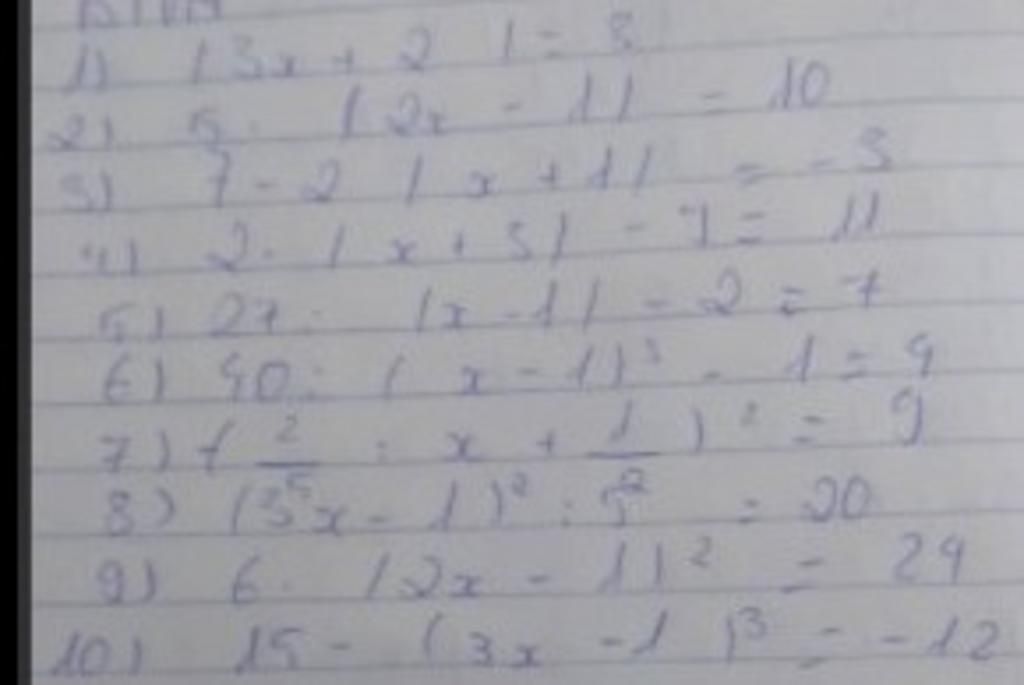 1) |3x + 2| = 3
2) 5. |2x - 1| = 10
3) 7 - 2 |x + 1| = -3
4) 2. |x + 3| - 7 = 11
5) 27 : |x - 1| - 2 = 7
6) 40 : (x - 1)³ - 1 = 4
7) (2/5 : x + 1/2)² = 9
8) (3x - 1)² : 5 = 20
9) 6. (2x - 1)² = 24
10) 15 - (3x - 1)³ = -12